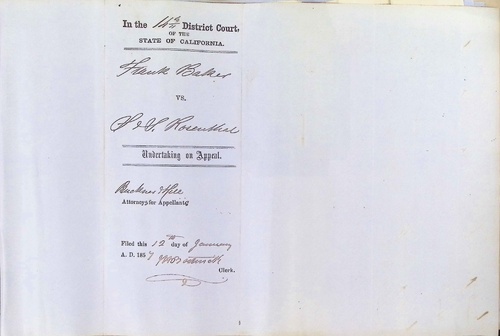 In the 14th District Court,
OF THE
STATE OF CALIFORNIA.
Frank Baker
VS.
S & S. Rosenthal
Undertaking on Appeal.
Buckner & Hill
Attorneys for Appellants
Filed this 12th day of January
A. D. 1857
Clerk.